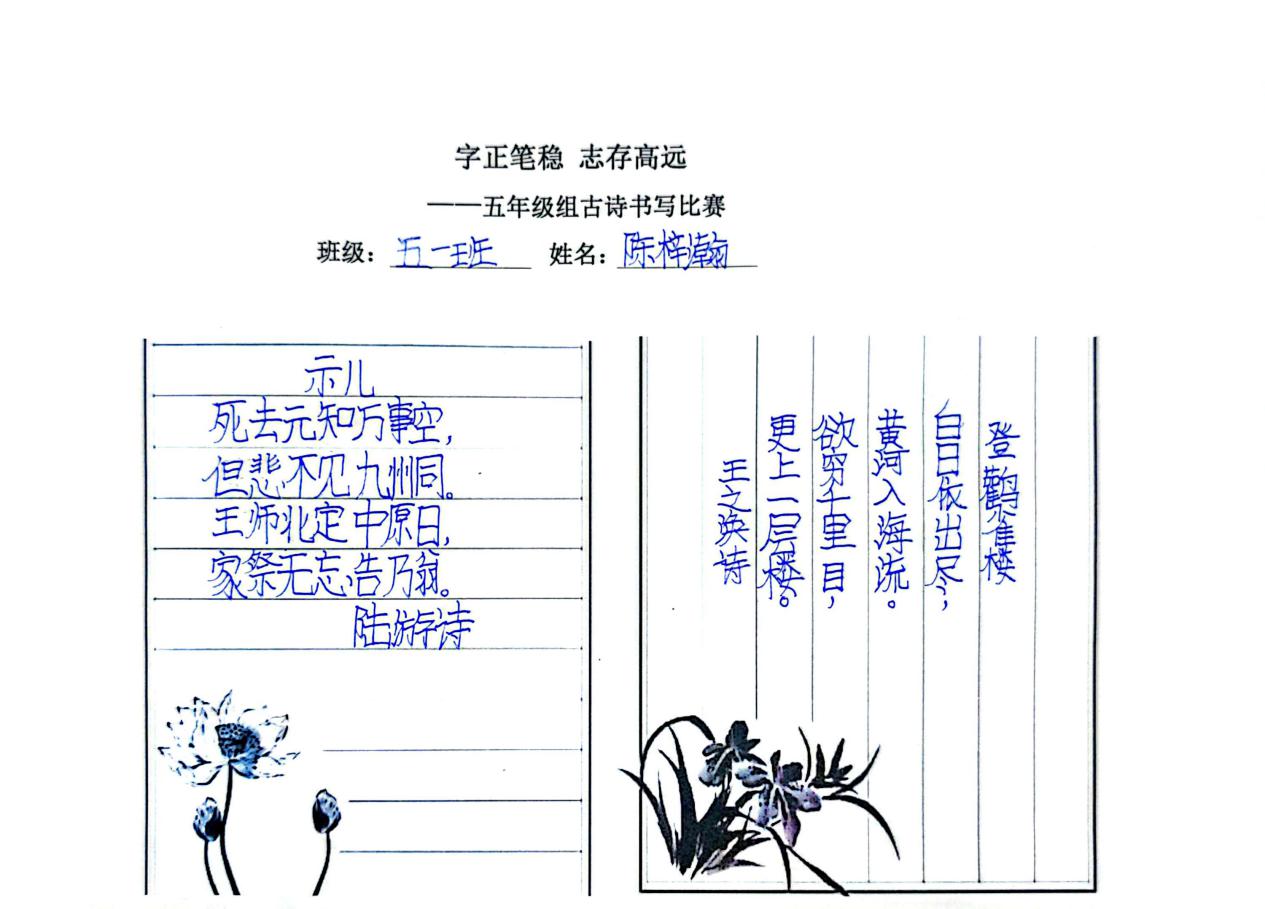 字正笔稳 志存高远
——五年级组古诗书写比赛
班级：五一班 姓名：陈梓瀚
示儿
死去元知万事空，
但悲不见九州同。
王师北定中原日，
家祭无忘告乃翁。
陆游诗
登鹳雀楼
白日依出尽，
黄河入海流。
欲穷千里目，
更上一层楼。
王之涣诗